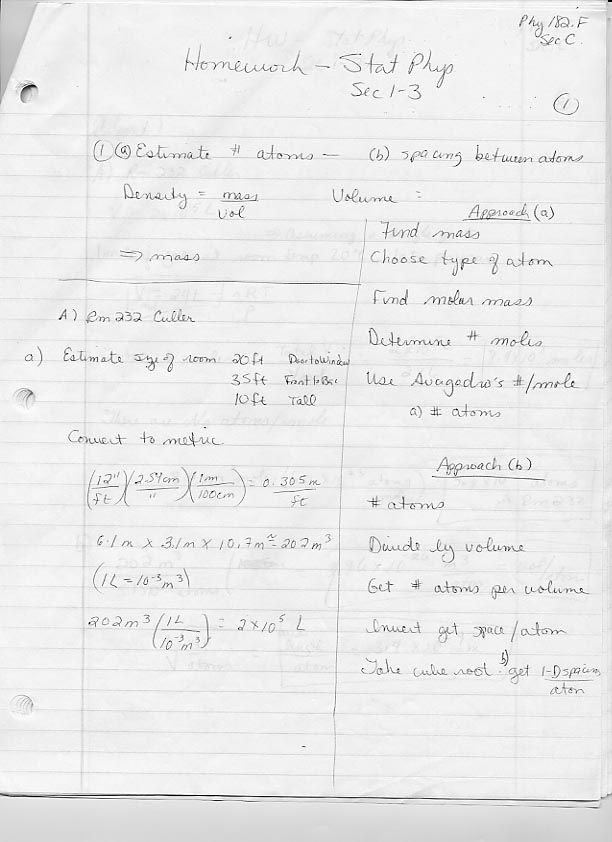 Phy 182.F
Sec C.
Homework - Stat Phys
Sec 1-3
1
① ⓐ Estimate # atoms — (b) spacing between atoms
Density = mass/vol
Volume =
⇒ mass
Approach (a)
Find mass
Choose type of atom
Find molar mass
Determine # moles
Use Avagadro's #/mole
a) # atoms
A) Rm 232 Culler
a) Estimate size of room 20 ft Door to Window
35 ft Front to Bac
10 ft Tall
Convert to metric
(12"/ft)(2.54cm/")(1m/100cm) = 0.305 m/ft
6.1 m x 3.1 m x 10.7 m ≅ 202 m³
(1L = 10⁻³ m³)
202 m³ (1L/10⁻³ m³) = 2 x 10⁵ L
Approach (b)
# atoms
Divide by volume
Get # atoms per volume
Invert get space/atom
Take cube root b) get 1-D spacing/atom